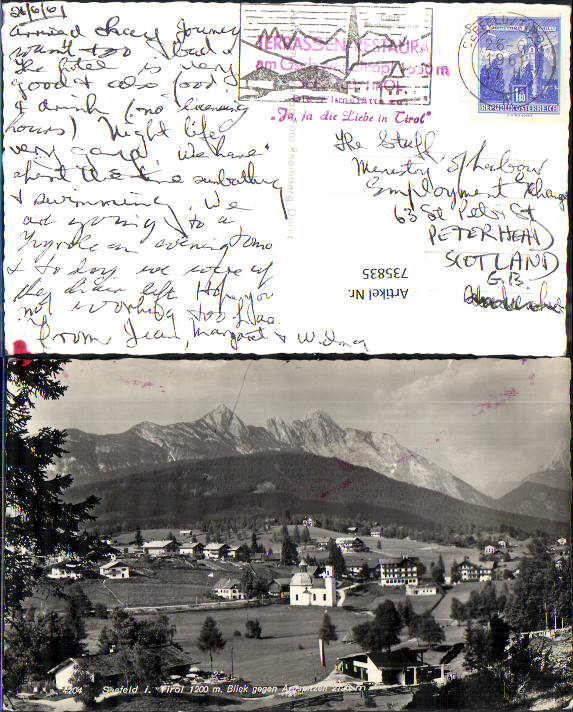 26/6/61
arrived okay Journey
wasn't too bad
The Hotel is very
good & also food
& drink (no licensing
hours) Night life
very good. We have
spent the time sunbathing
& swimming. We
are going to a
Tyrolean evening tomo
& to day we were up
the chair lift Hope you
not working too hard
From Jean, Margaret & Wilma
TERRASSEN RESTAURA
am 
"Ja, ja die Liebe in Tirol"
SEEFELD/TIROL
26
1961
REPUBLIK ÖSTERREICH
The Staff,
Ministry of Labour
Employment Exchange
63 St Peter St
PETERHEAD
SCOTLAND
G.B.
Artikel Nr.
735835
Rhomberg
4204 Seefeld i. Tirol 1200 m. Blick gegen